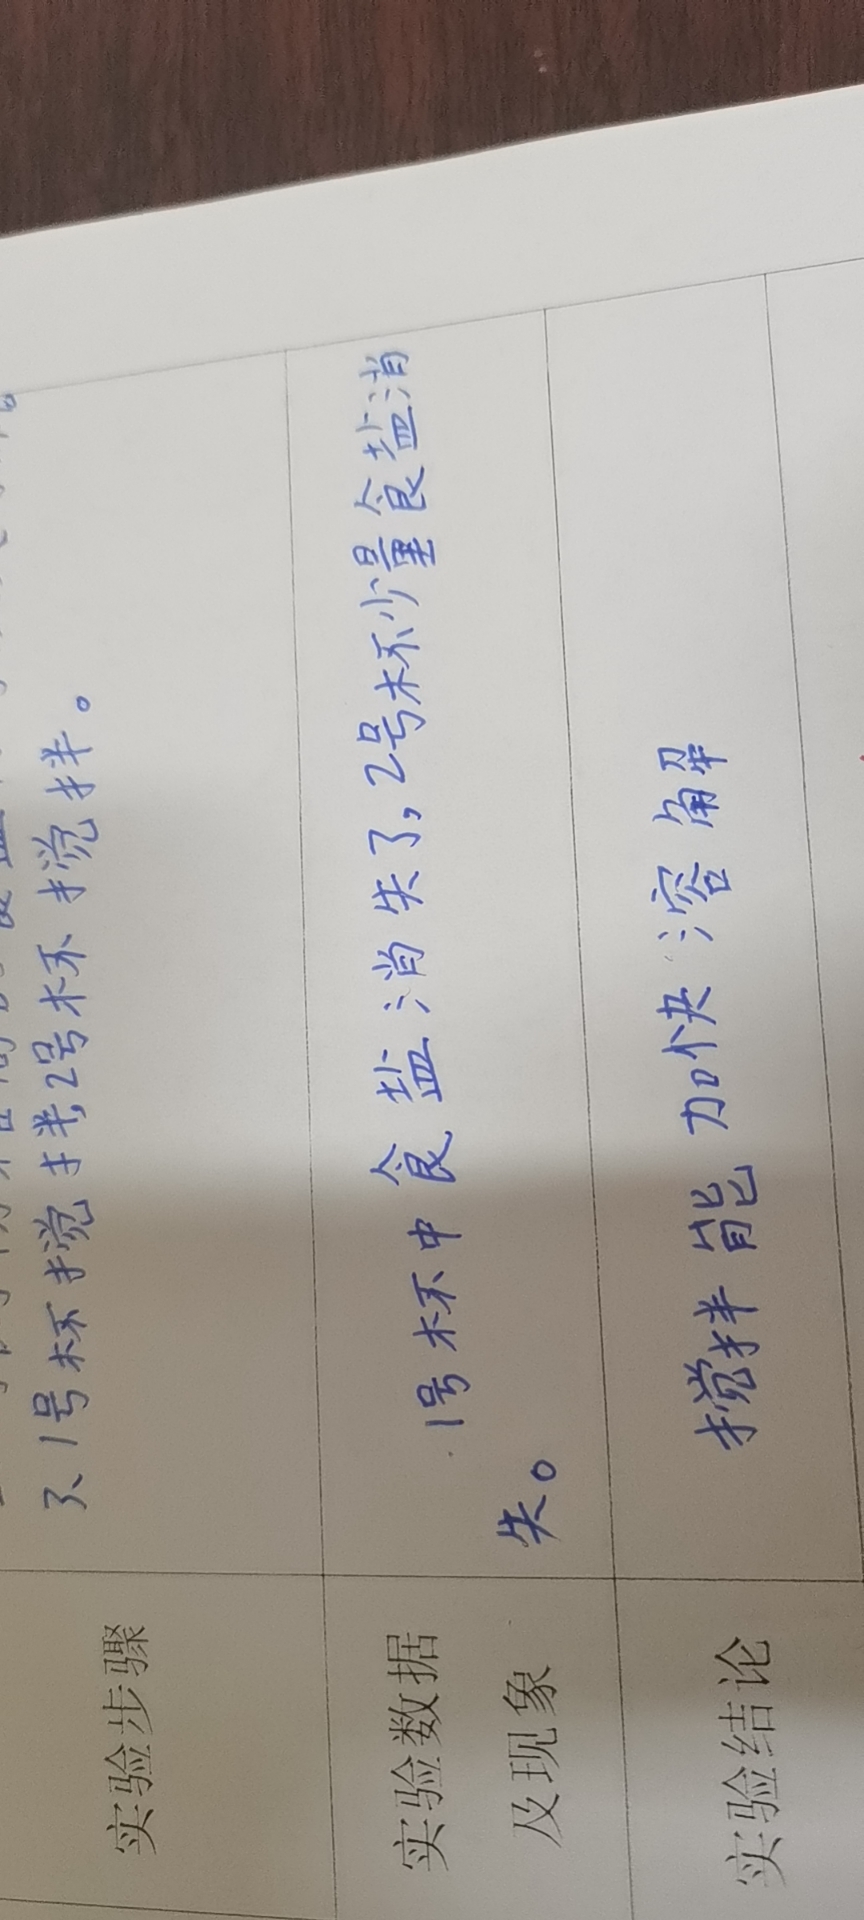 实验步骤
3、1号杯搅拌,2号杯不搅拌。
实验数据
及现象
1号杯中食盐消失了,2号杯少量食盐消
失。
实验结论
搅拌能加快溶解